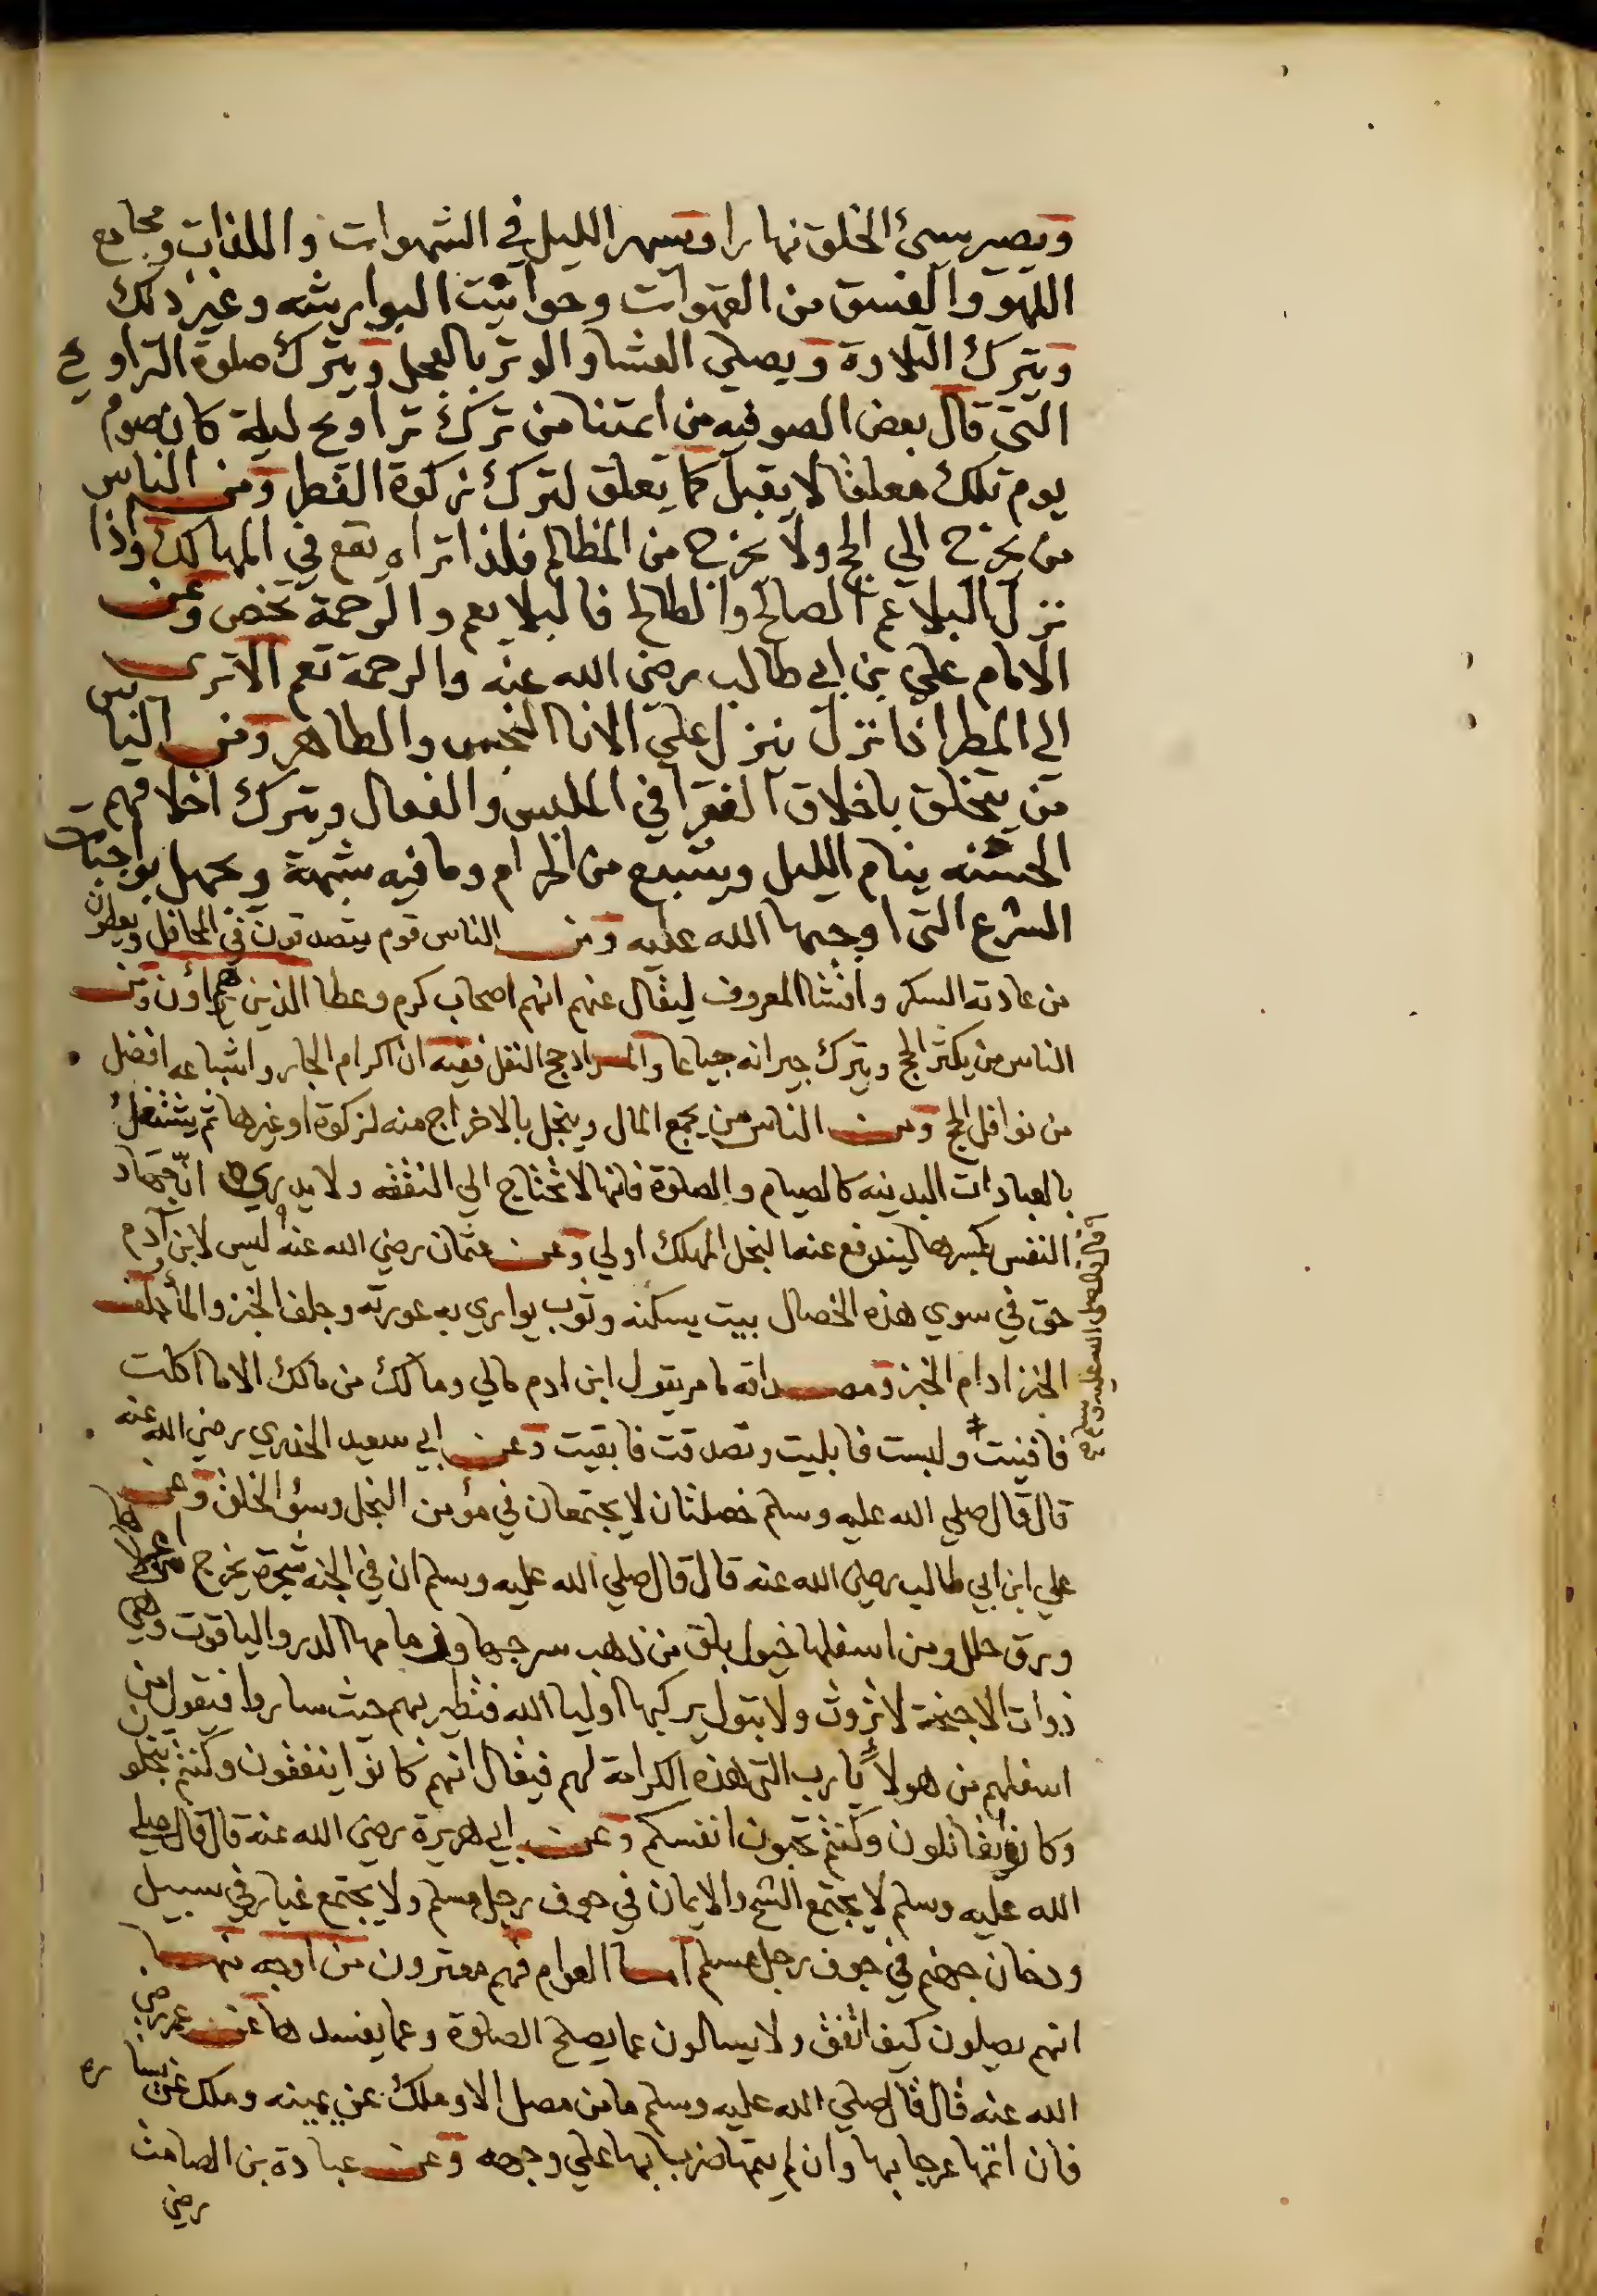 ويصير سيئ الخلق نهارا ويسهر الليل في الشهوات واللذات ومجامع
اللهو والفسق من القهوات وحوانيت البوارشه وغير ذلك
ويترك التلاوة ويصلي العشا والوتر بالعجل ويترك صلوة التراويح
التي قال بعض الصوفيه من ايمتنا من ترك تراويح ليلة كان صوم
يوم تلك معلقا لا يقبل كما يعلق لترك زكوة الفطر ومن الناس
من يخرج الي الحج ولا يخرج من المظالم فلذا تراه يقع في المهالك واذا
نزل البلا عم الصالح والطالح فالبلا يعم والرحمة تخص وعن
الامام علي بن ابي طالب رضي الله عنه والرحمة تعم الا تري
الي المطر اذا نزل ينزل علي الانا النجس والطاهر ومن الناس
من يتخلق باخلاق الفقرا في الملبس والفعال ويترك اخلاقهم
الحسنه ينام الليل ويشبع من الحرام وما فيه شبهة ويجهل بواجبات
الشرع التي اوجبها الله عليه ومن الناس قوم يتصدقون في المحافل ويعطون
من عادته السكر وافشا المعروف ليقال عنهم انهم اصحاب كرم وعطا الذين هم يراؤن ومن
الناس من يكثر الحج ويترك جيرانه جياعا والمراد حج النفل ففيه ان اكرام الجار واشباعه افضل
من نوافل الحج ومن الناس من يجمع المال ويبخل بالاخراج منه لزكوة او غيرها ثم يشتغل
بالعبادات البدنيه كالصيام والصلوة فانها لا تحتاج الي النفقه ولا يدري ان جهاد
النفس بكسرها ليندفع عنها البخل المهلك اولي وعن عثمان رضي الله عنه ليس لابن آدم
حق في سوي هذه الخصال بيت يسكنه وثوب يواري به عورته وجلف الخبز والمأ جلف
الخبز ادام الخبز ومصداقه ما مر يقول ابن ادم مالي ومالك من مالك الا ما اكلت
فافنيت ولبست فابليت وتصدقت فابقيت وعن ابي سعيد الخدري رضي الله عنه
قال قال صلي الله عليه وسلم خصلتان لا يجتمعان في مؤمن البخل وسؤ الخلق وعن
علي ابن ابي طالب رضي الله عنه قال قال صلي الله عليه وسلم ان في الجنه شجرة يخرج من اعلاها
ورق حلل ومن اسفلها خيول بلق من ذهب سرجها وزمامها الدر والياقوت وهي
ذوات الاجنحة لا تروث ولا تبول يركبها اوليا الله فتطير بهم حيث ساروا فيقول من
اسفلهم من هولاء يا رب التي هذه الكرامة لهم فيقال انهم كانوا ينفقون وكنتم تبخلون
وكانوا يقاتلون وكنتم تحبون انفسكم وعن ابي هريرة رضي الله عنه قال قال صلي
الله عليه وسلم لا يجتمع الشح والايمان في جوف رجل مسلم ولا يجتمع غبار في سبيل
ودخان جهنم في جوف رجل مسلم اما العوام فهم مغترون من اوجه منها
انهم يصلون كيف اتفق ولا يسالون عما يصلح الصلوة وعما يفسدها عن عمر رضي
الله عنه قال قال صلي الله عليه وسلم ما من مصل الا وملك عن يمينه وملك عن يساره
فان اتمها عرجا بها وان لم يتمها ضربا بها علي وجهه وعن عبادة بن الصامت
رضي